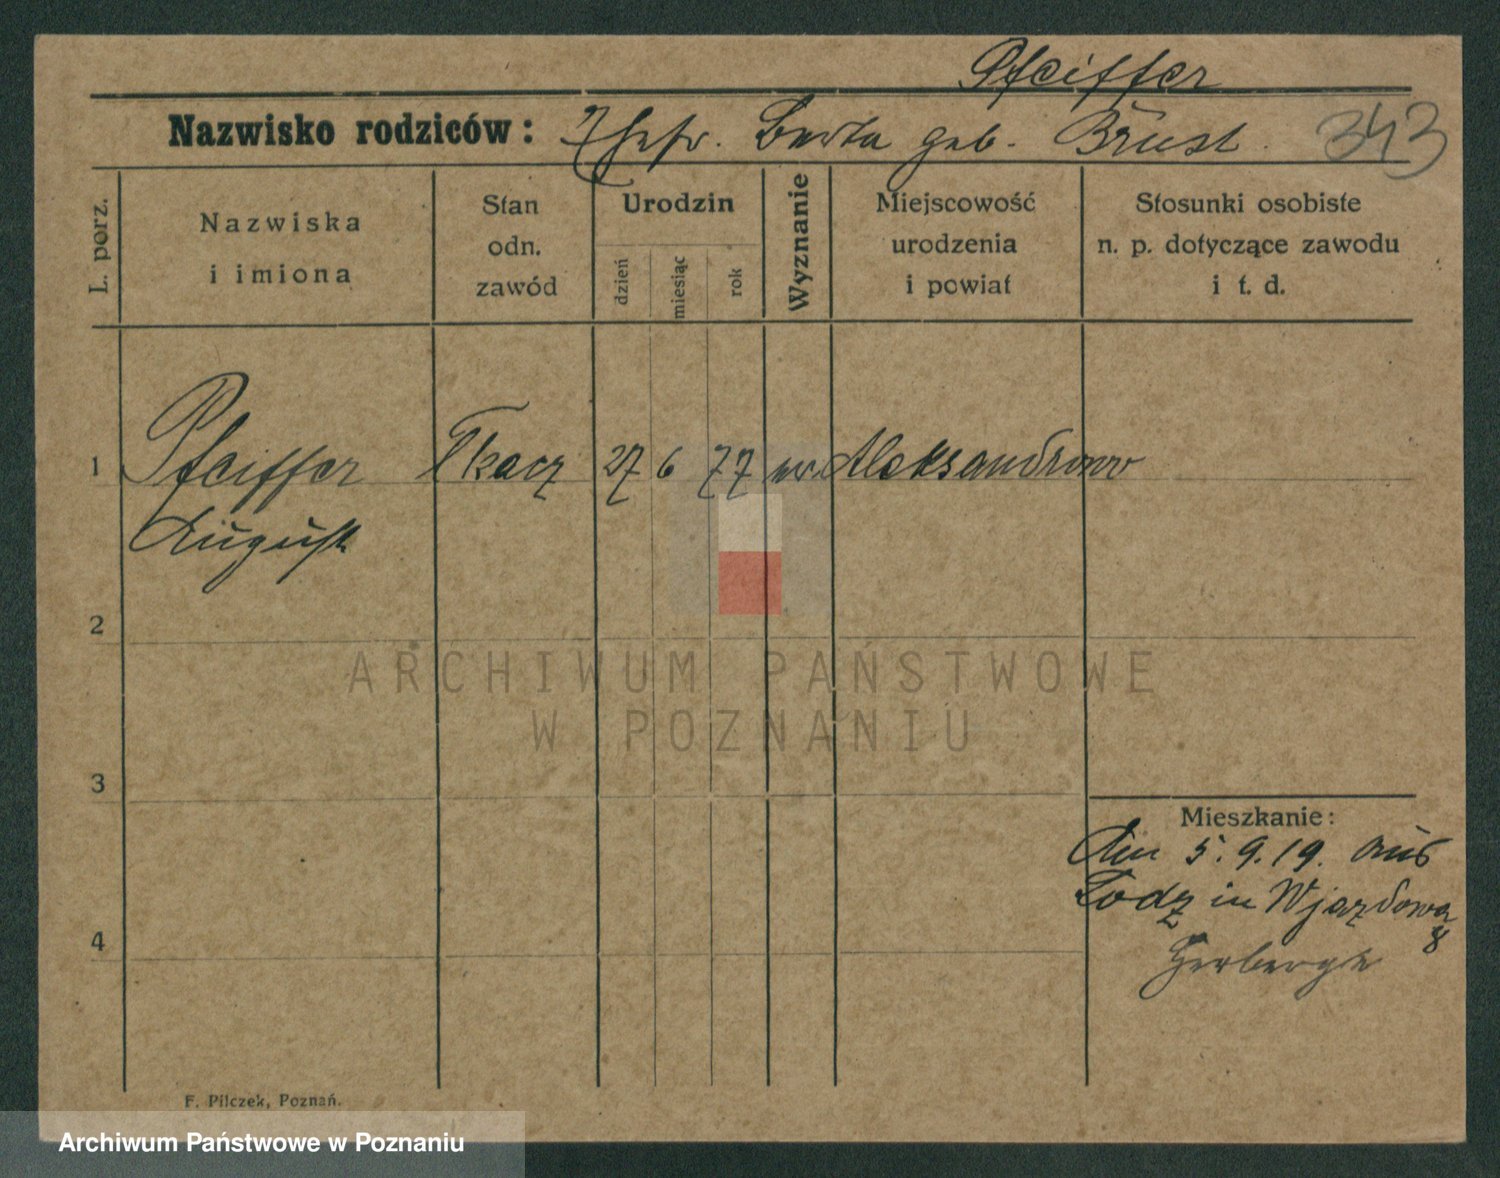 Pfeiffer
Nazwisko rodziców: Berta geb. Brust. 343
L. porz.
Nazwiska
i imiona
Stan
odn.
zawód
Urodzin
dzień
miesiąc
rok
Wyznanie
Miejscowość
urodzenia
i powiat
Stosunki osobiste
n. p. dotyczące zawodu
i t. d.
1 Pfeiffer Tkacz 27 6 77 Aleksandrow
August
2
3
4
Mieszkanie:
Am 5.9.19. aus
Lodz in Wjazdowa
8
Herberge
F. Pilczek, Poznań.
ARCHIWUM PAŃSTWOWE
W POZNANIU
Archiwum Państwowe w Poznaniu